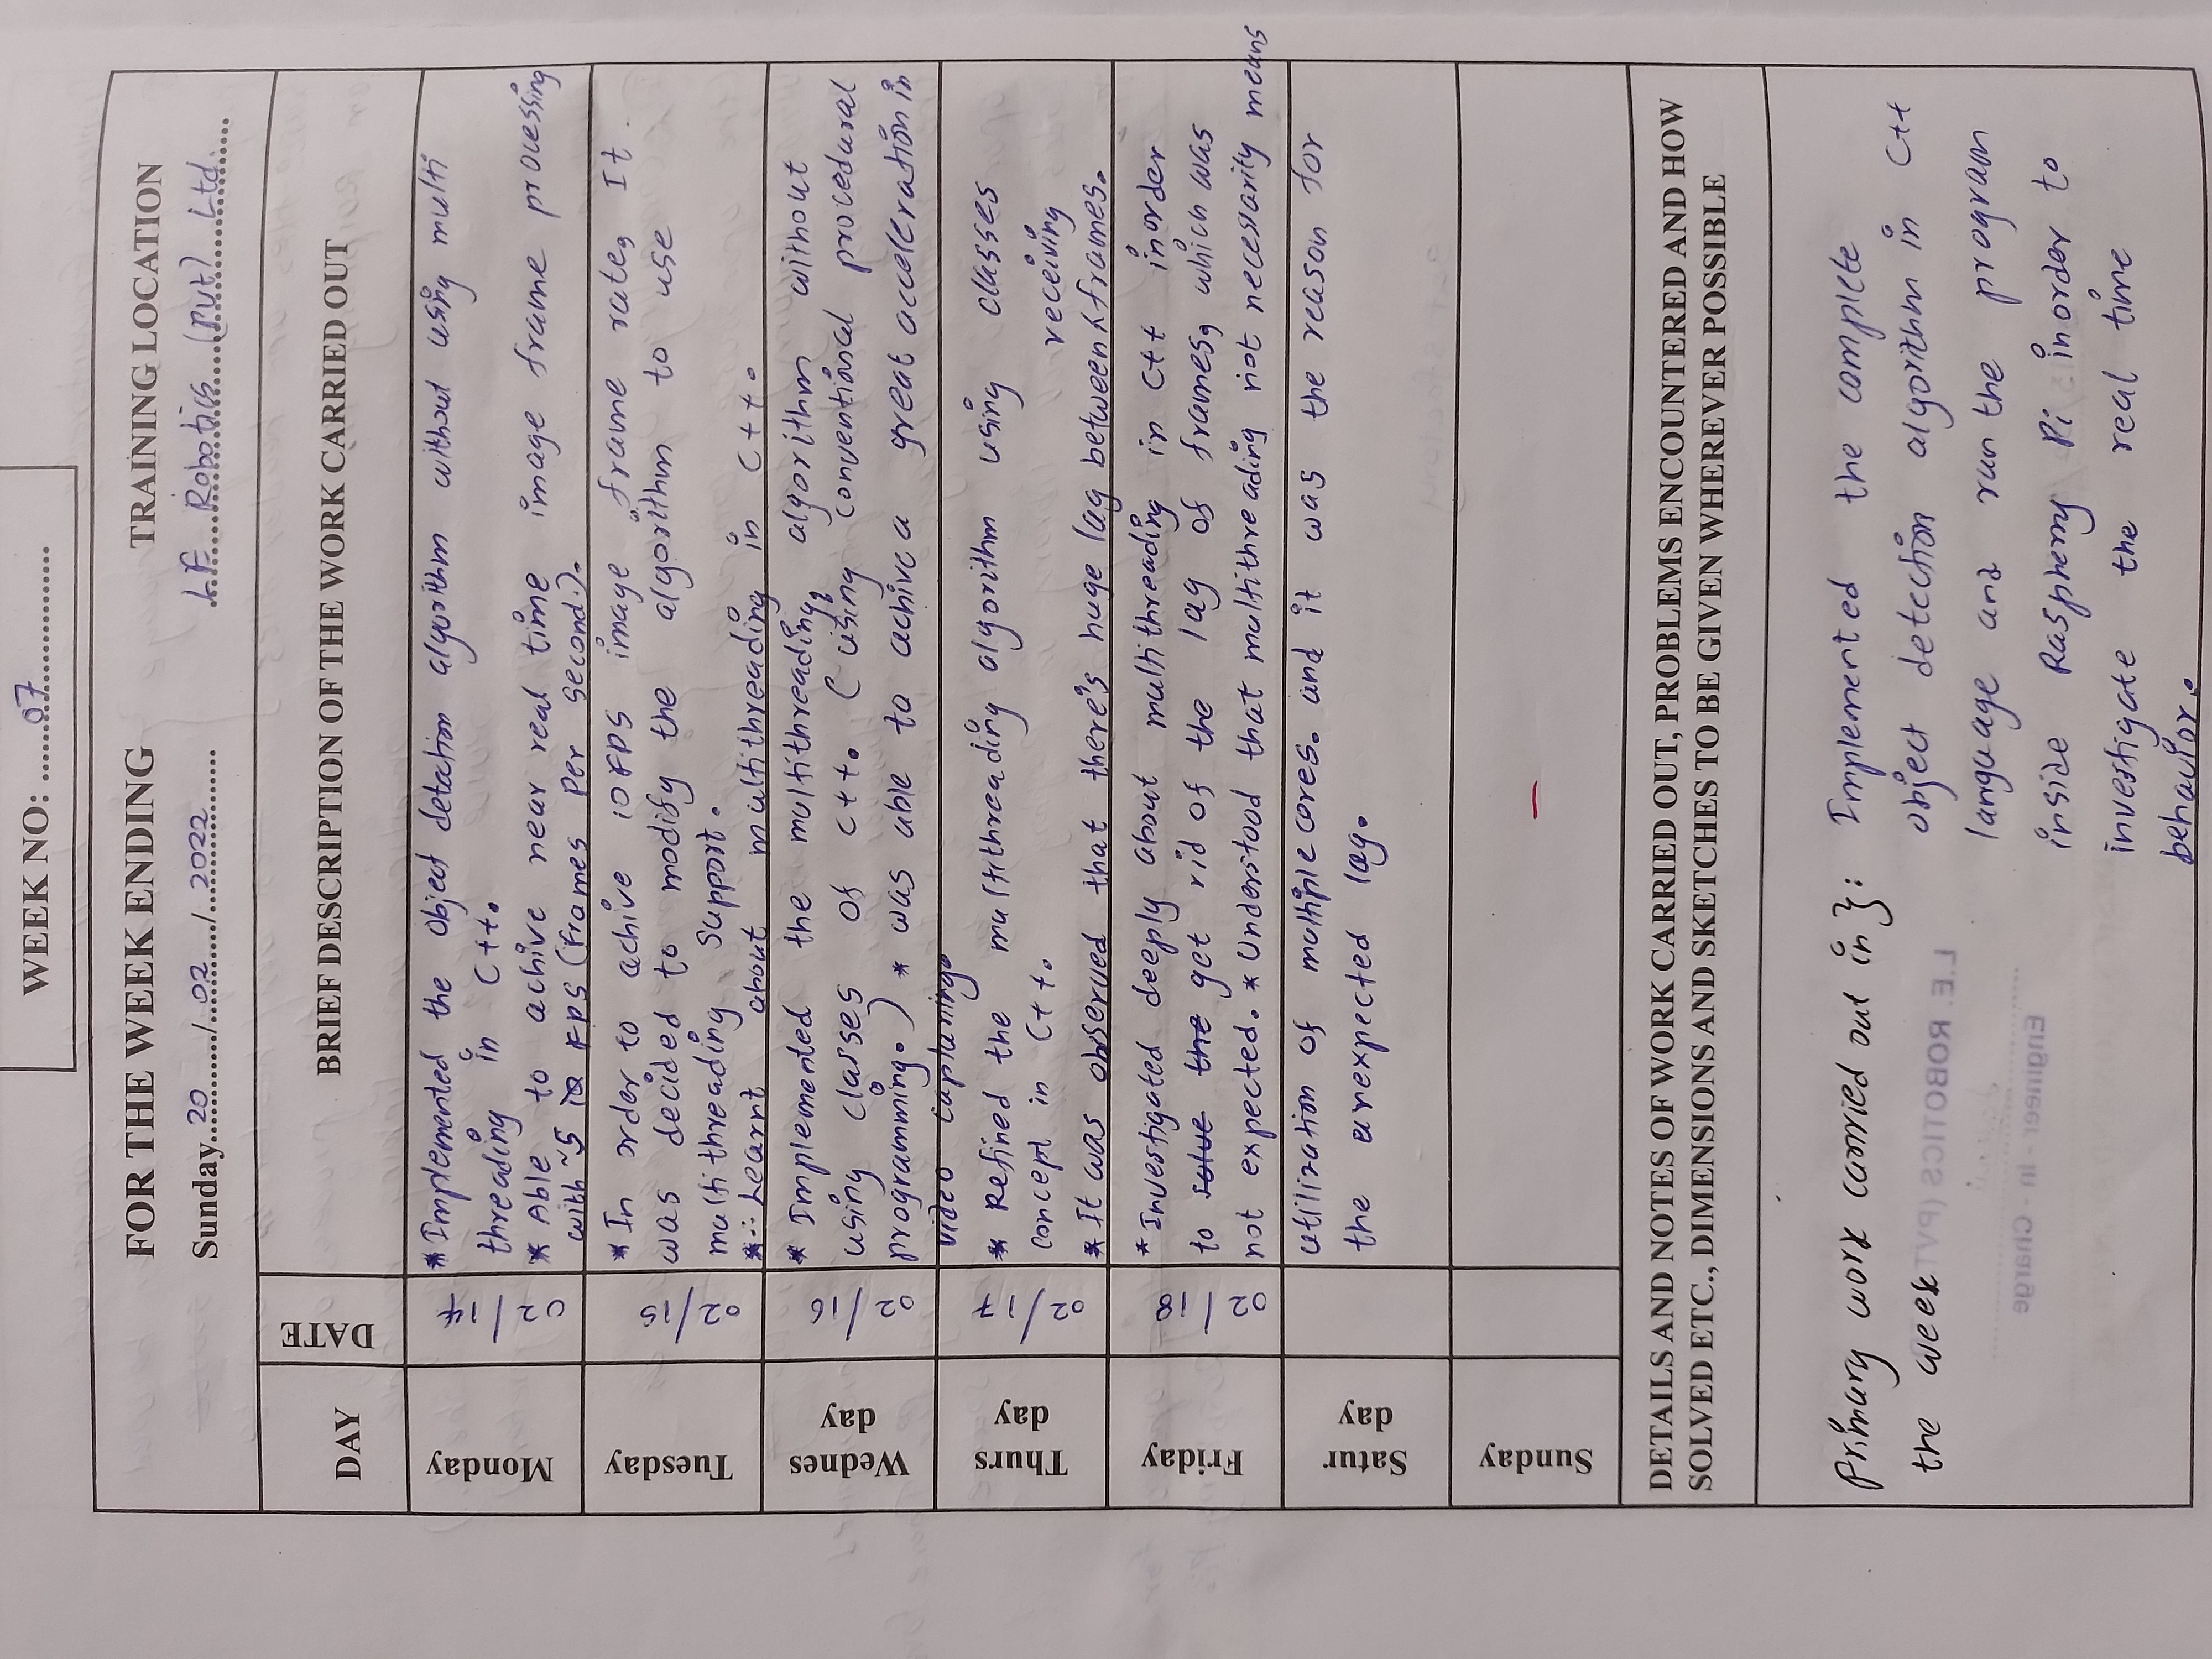 WEEK NO: ........07........................
FOR THE WEEK ENDING
TRAINING LOCATION
Sunday..20......../..02....../...2022............
LE Robotics (Pvt) Ltd.
DAY
DATE
BRIEF DESCRIPTION OF THE WORK CARRIED OUT
Monday
02/14
* Implemented the object detection algorithm without using multi
threading in C++.
* Able to achive near real time image frame processing
with ~5 10 FPS (frames Per Second.).
Tuesday
02/15
* In order to achive 10 FPS image frame rate, It
was decided to modify the algorithm to use
multithreading Support.
* ∴ Learnt about multithreading in C++.
Wednes
day
02/16
* Implemented the multithreading, algorithm without
using classes of C++. (using conventional procedural
programming.) * was able to achive a great acceleration in
video capturing.
Thurs
day
02/17
* Refined the multithreading algorithm using classes
concept in C++.
receiving
* It was observed that there's huge lag between ʎ frames.
Friday
02/18
* Investigated deeply about multithreading in C++ inorder
to solve the get rid of the lag of frames, which was
not expected. * Understood that multithreading not necessarity means
Satur
day
utilization of multiple cores. and it was the reason for
the unexpected lag.
Sunday
–
DETAILS AND NOTES OF WORK CARRIED OUT, PROBLEMS ENCOUNTERED AND HOW
SOLVED ETC., DIMENSIONS AND SKETCHES TO BE GIVEN WHEREVER POSSIBLE
Primary work carried out in }:
the week
Implemented the complete
object detection algorithm in C++
language and run the program
inside Raspberry Pi inorder to
investigate the real time
behavior.
L.E. ROBOTICS (PVT)
Engineer - In - Charge